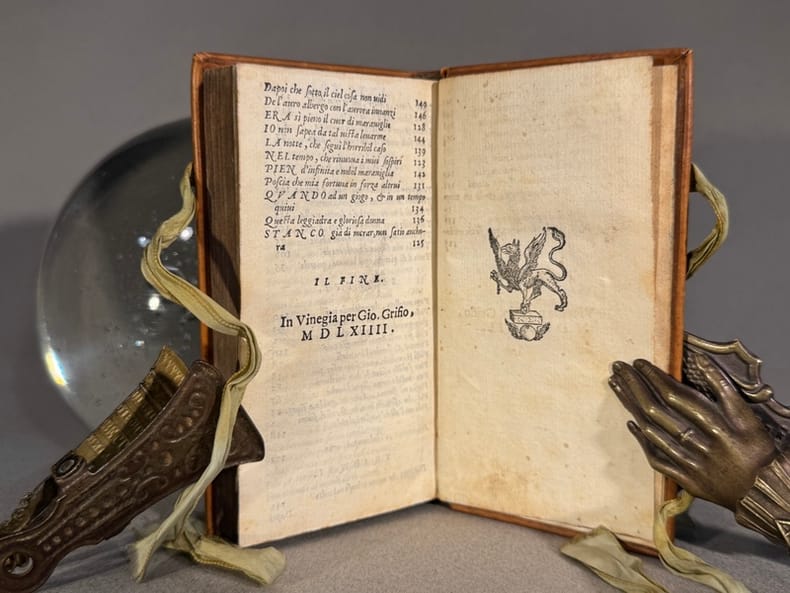 Dapoi che sotto il ciel cosa non uidi 149
De l'auro albergo con l'aurora innanzi 146
ERA sì pieno il cuor di marauiglie 128
IO non sapea da tal uista leuarme 144
LA notte, che seguì l'horribil caso 139
NEL tempo, che rinuoua i miei sospiri 123
PIEN d'infinita e nobil marauiglia 142
Poscia che mia fortuna in forza altrui 131
QVANDO ad un giogo, & in un tempo
quiui 134
Questa leggiadra e gloriosa donna 136
STANCO già di mirar, non satio ancho-
ra 125
IL FINE.
In Vinegia per Gio. Grifio,
MDLXIIII.